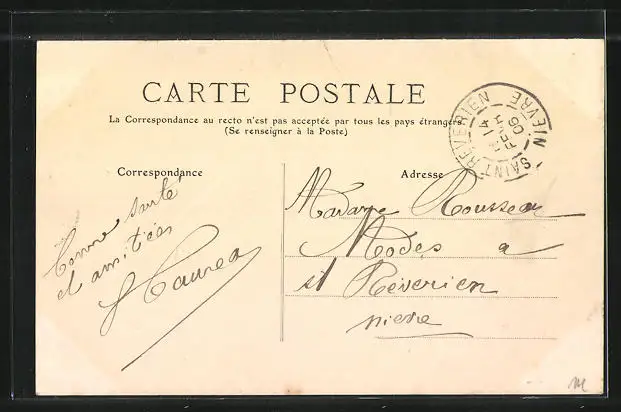 CARTE POSTALE
La Correspondance au recto n'est pas acceptée par tous les pays étrangers.
(Se renseigner à la Poste)
SAINT-REVERIEN
14
FEVR
06
NIEVRE
Correspondance
Bonne santé
et amitiés
Adresse
Madame Rousseau
Modes a
st Réverien
nievre
M